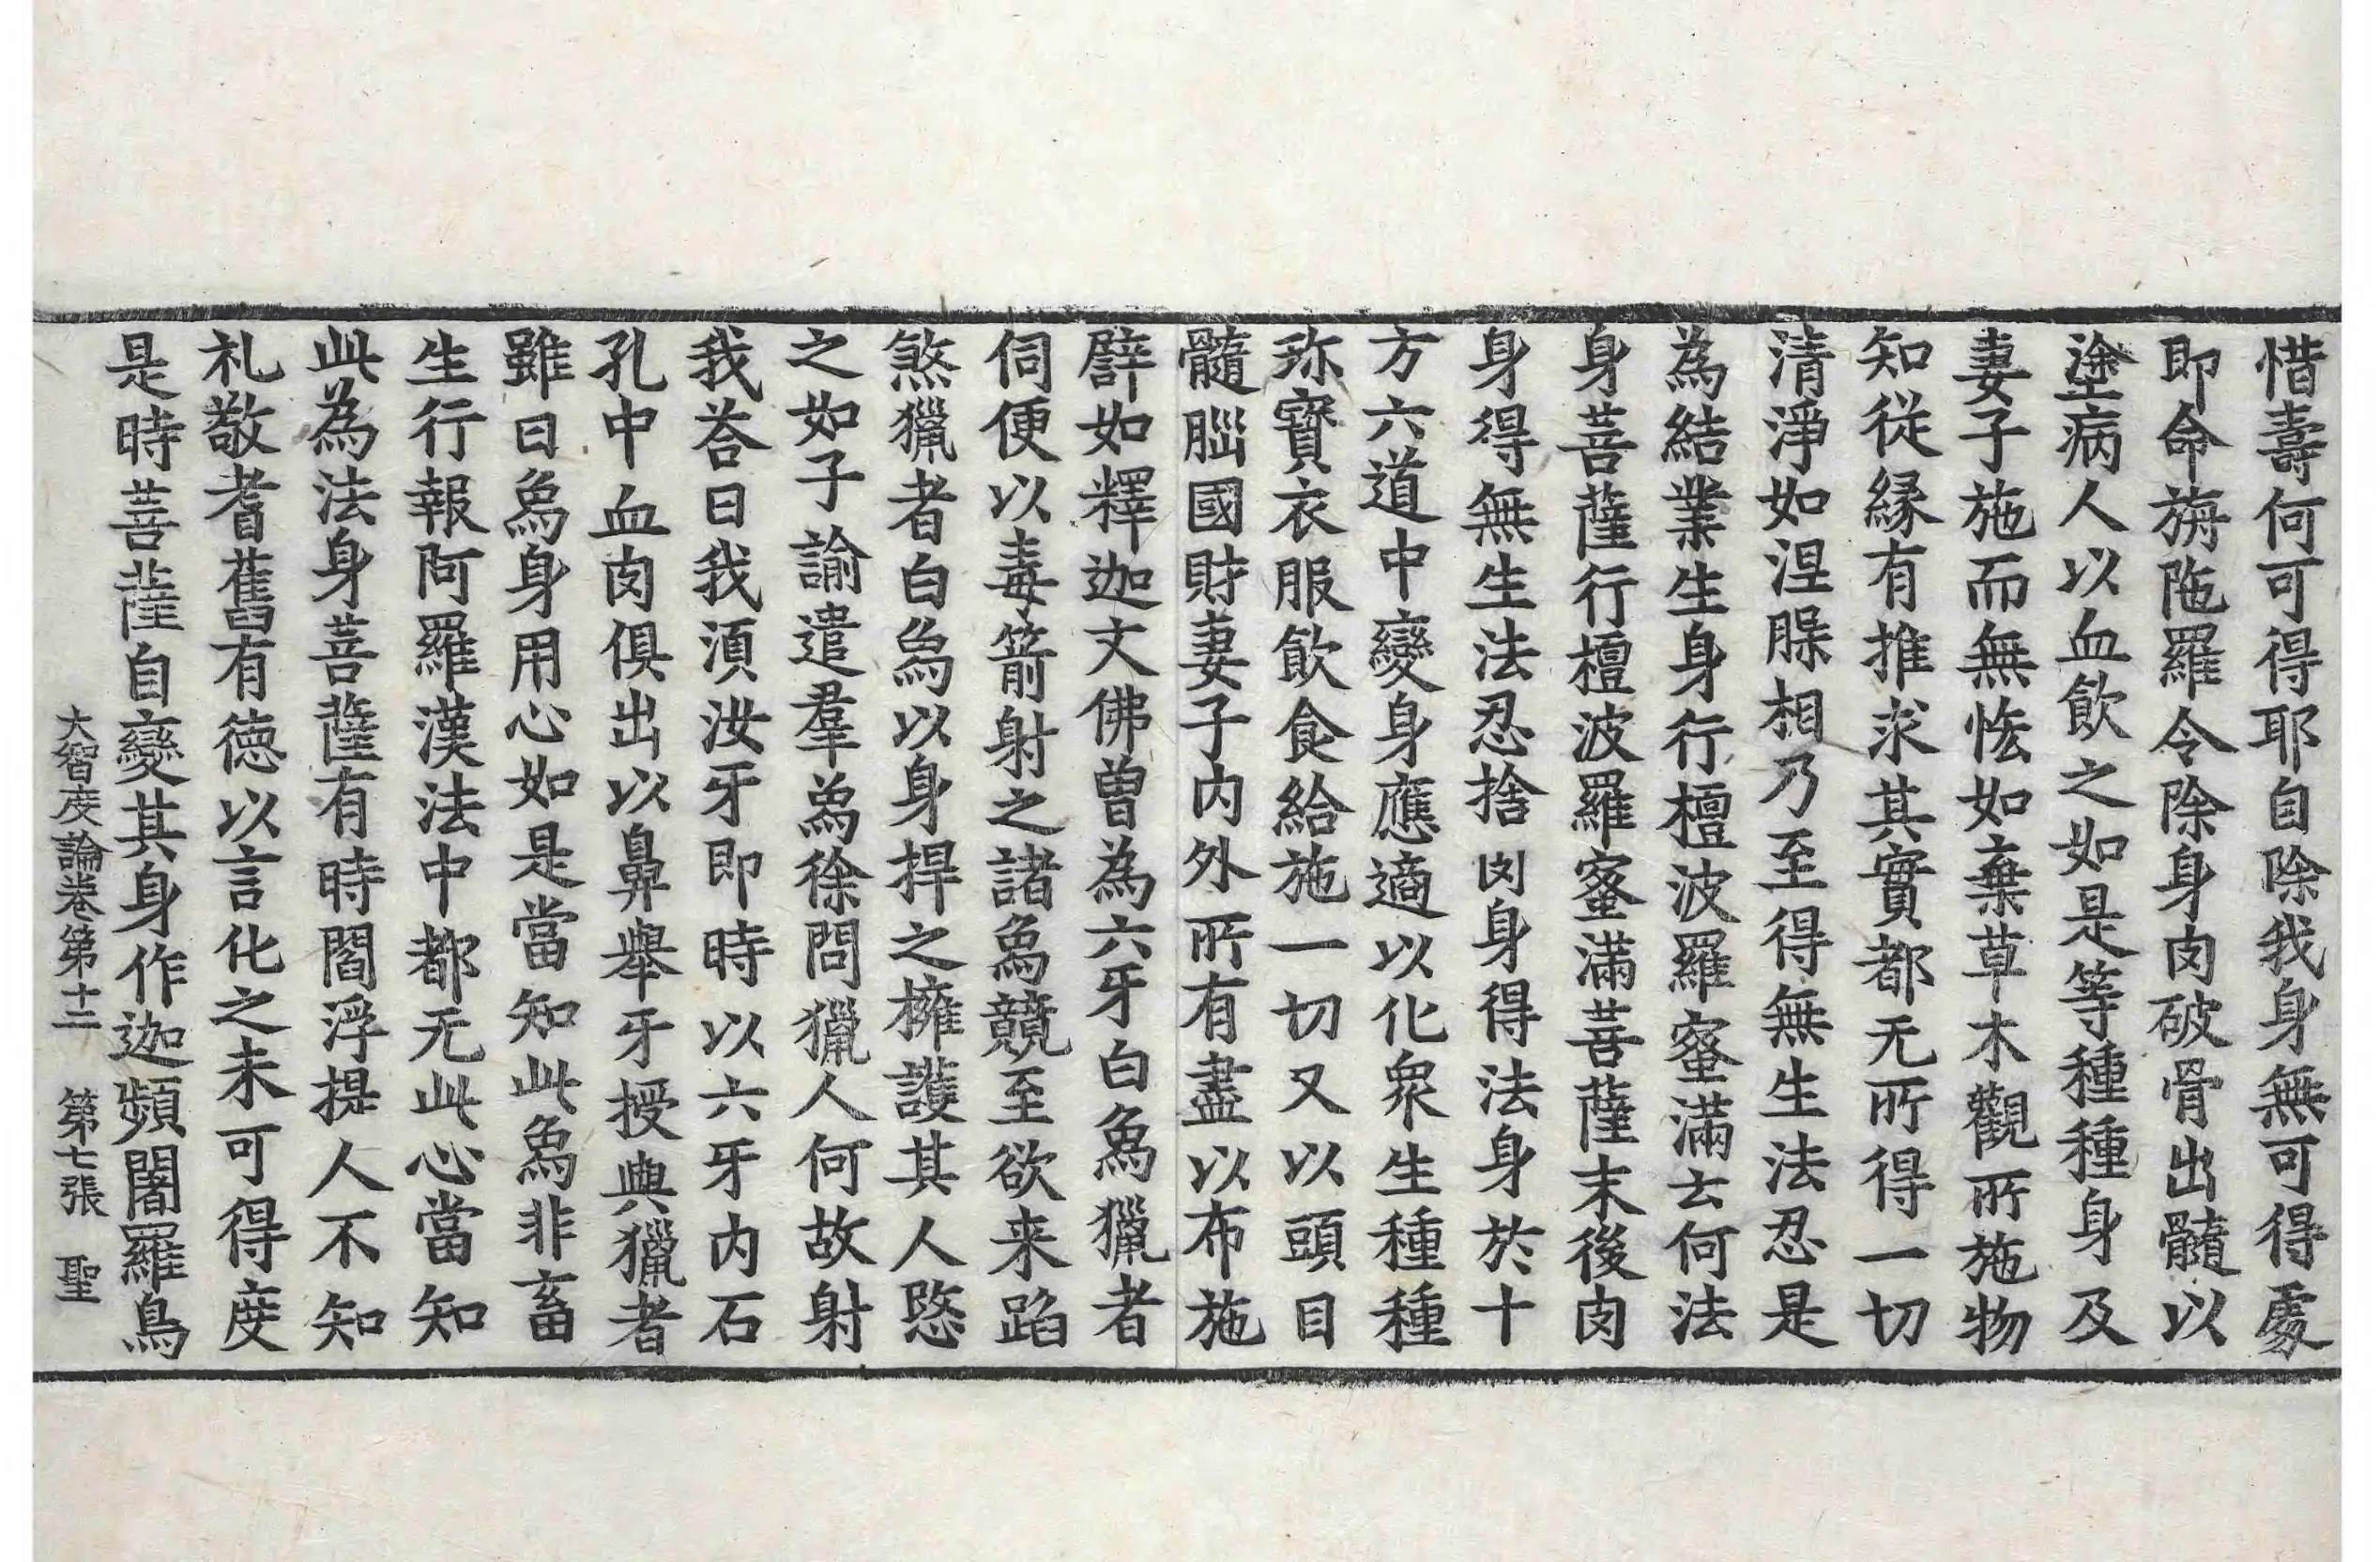 惜壽何可得耶自除我身無可得處
即命旃陁羅令除身肉破骨出髓以
塗病人以血飲之如是等種種身及
妻子施而無悋如棄草木觀所施物
知從緣有推求其實都无所得一切
清淨如涅槃相乃至得無生法忍是
為結業生身行檀波羅蜜滿云何法
身菩薩行檀波羅蜜滿菩薩末後肉
身得無生法忍捨肉身得法身於十
方六道中變身應適以化眾生種種
珎寶衣服飲食給施一切又以頭目
髓腦國財妻子內外所有盡以布施
譬如釋迦文佛曾為六牙白象獵者
伺便以毒箭射之諸象競至欲来蹈
煞獵者白象以身捍之擁護其人愍
之如子諭遣羣象徐問獵人何故射
我荅曰我湏汝牙即時以六牙內石
孔中血肉俱出以鼻舉牙授與獵者
雖曰象身用心如是當知此象非畜
生行報阿羅漢法中都无此心當知
此為法身菩薩有時閻浮提人不知
礼敬耆舊有德以言化之未可得度
是時菩薩自變其身作迦頻闍羅鳥
大智度論卷第十二 第七張 聖